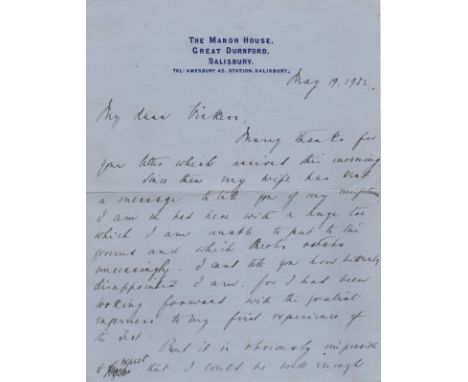 THE MANOR HOUSE,
GREAT DURNFORD,
SALISBURY.
TEL: AMESBURY 45. STATION, SALISBURY.
May 19. 1932.
My dear Vickers.
Many thanks for
your letter which arrived this morning
Since then my wife has sent
a message to tell you of my misfortune
I am in bed here with a huge toe
which I am unable to put to the
ground and which throbs
unceasingly. I cant tell you how bitterly
disappointed I am. for I had been
looking forward with the greatest
eagerness to my first experience of
the Test.
But it is obviously impossible
to expect that I could be well enough